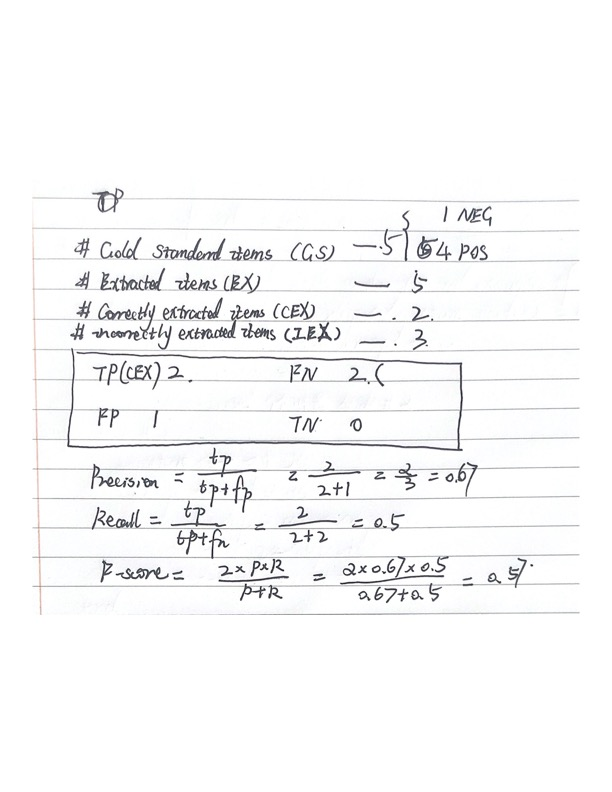 TP
1 NEG
# Gold Standard items (GS) — .5 { 4 POS
# Extracted items (EX) — 5
# Correctly extracted items (CEX) — . 2.
# incorrectly extracted items (IEX) — . 3.
TP(CEX) 2. FN 2. (
FP 1 TN 0
Precision = tp / tp+fp = 2 / 2+1 = 2/3 = 0.67
Recall = tp / tp+fn = 2 / 2+2 = 0.5
F-score = 2xPxR / P+R = 2x0.67x0.5 / 0.67+0.5 = 0.57.